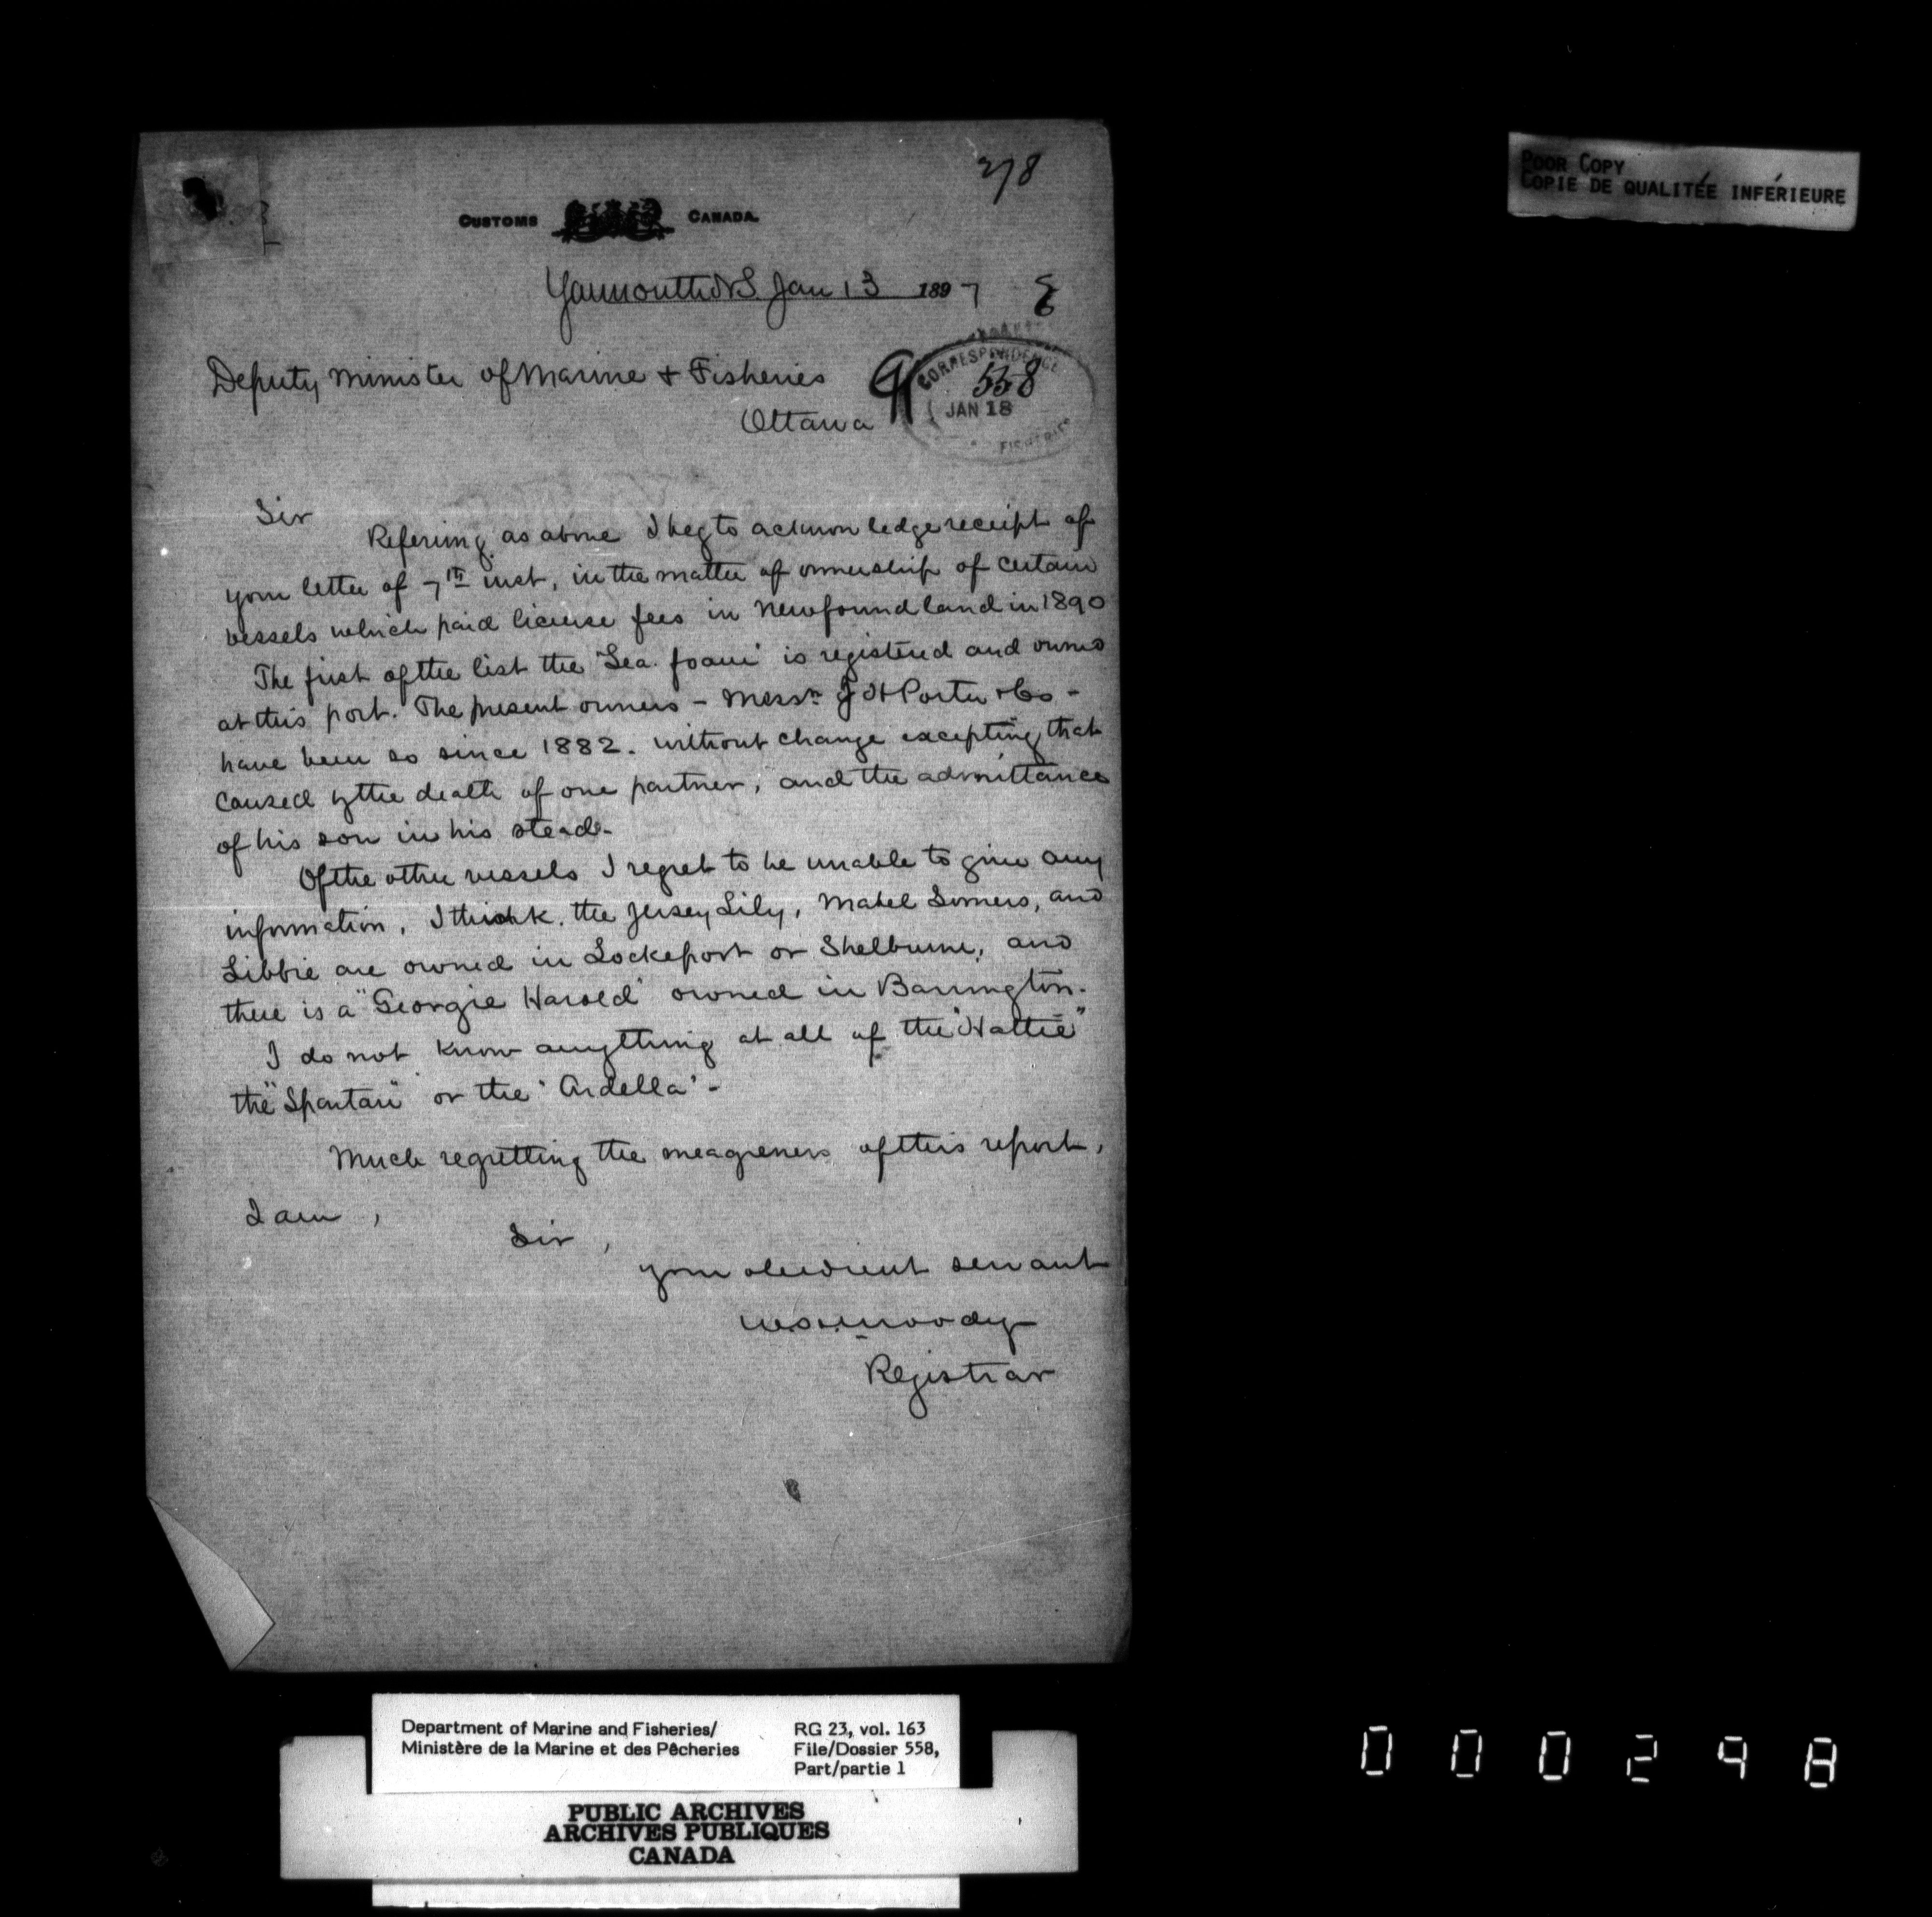 278
CUSTOMS CANADA.
Yarmouth NS. Jan 13 1897
Deputy Minister of Marine & Fisheries
Ottawa
CORRESPONDENCE
558
JAN 18
FISHERIES
Sir
Refering as above I beg to acknowledge receipt of
your letter of 7th inst, in the matter of ownership of certain
vessels which paid license fees in Newfoundland in 1890
The first of the list the "Sea foam" is registered and owned
at this port. The present owners - Messrs J H Porter & Co -
have been so since 1882. without change excepting that
caused by the death of one partner, and the admittance
of his son in his stead.-
Of the other vessels I regret to be unable to give any
information, I think. the Jersey Lily, Mabel Somers, and
Libbie are owned in Lockeport or Shelburne, and
there is a "Georgie Harold" owned in Barrington.
I do not know anything at all of the "Hattie"
the "Spartan" or the "Ardella" -
Much regretting the meagreness of this report,
I am,
Sir,
your obedient servant
Moody
Registrar
POOR COPY
COPIE DE QUALITÉE INFÉRIEURE
Department of Marine and Fisheries/
Ministère de la Marine et des Pêcheries
RG 23, vol. 163
File/Dossier 558,
Part/partie 1
PUBLIC ARCHIVES
ARCHIVES PUBLIQUES
CANADA
000298